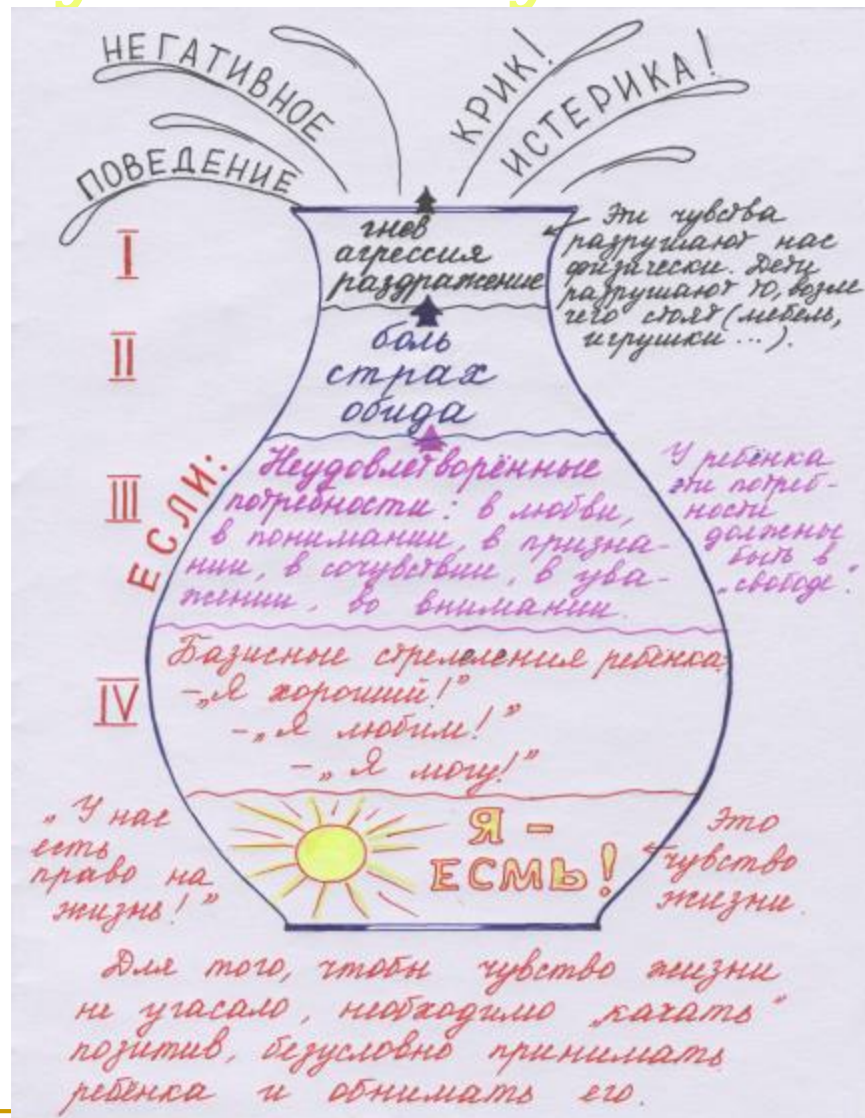 НЕГАТИВНОЕ
ПОВЕДЕНИЕ
КРИК!
ИСТЕРИКА!
I
гнев
агрессия
раздражение
Эти чувства
разрушают нас
физически. Дети
разрушают то, возле
чего стоят (мебель,
игрушки ...).
II
боль
страх
обида
ЕСЛИ:
III
Неудовлетворённые
потребности: в любви,
в понимании, в призна-
нии, в сочувствии, в ува-
жении, во внимании.
У ребёнка
эти потреб-
ности
должны
быть в
„свободе".
IV
Базисные стремления ребёнка
-„Я хороший!"
-„Я любим!"
-„Я могу!"
„У нас
есть
право на
жизнь!"
Я -
ЕСМЬ!
Это
чувство
жизни.
Для того, чтобы чувство жизни
не угасало, необходимо „качать"
позитив, безусловно принимать
ребёнка и обнимать его.